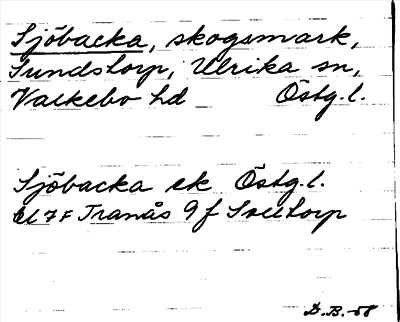 Sjöbacka, skogsmark,
Sundstorp, Ulrika sn,
Valkebo hd Östg.l.
Sjöbacka ek Östg.l.
7 F Tranås 9 f Soeltorp
D.B.-58